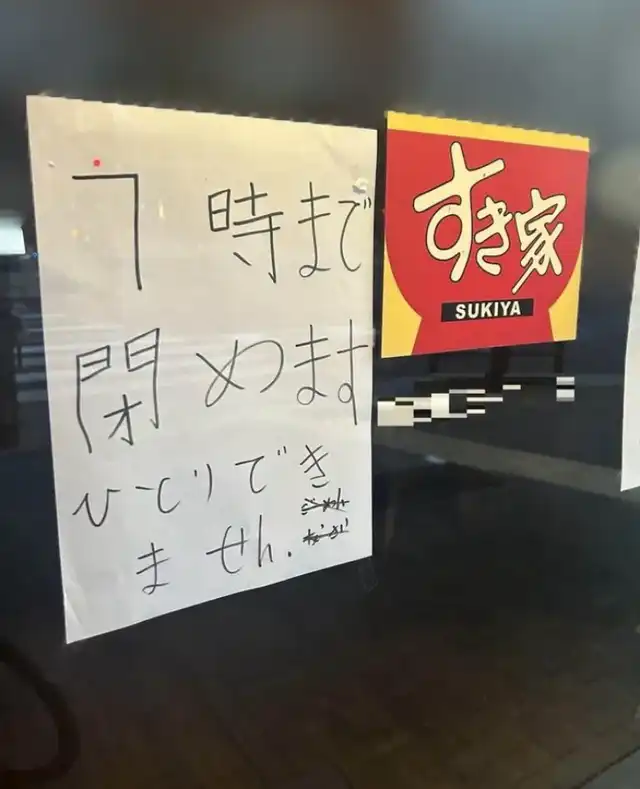 7時まで
閉めます
ひとりでき
ません.
すき家
SUKIYA